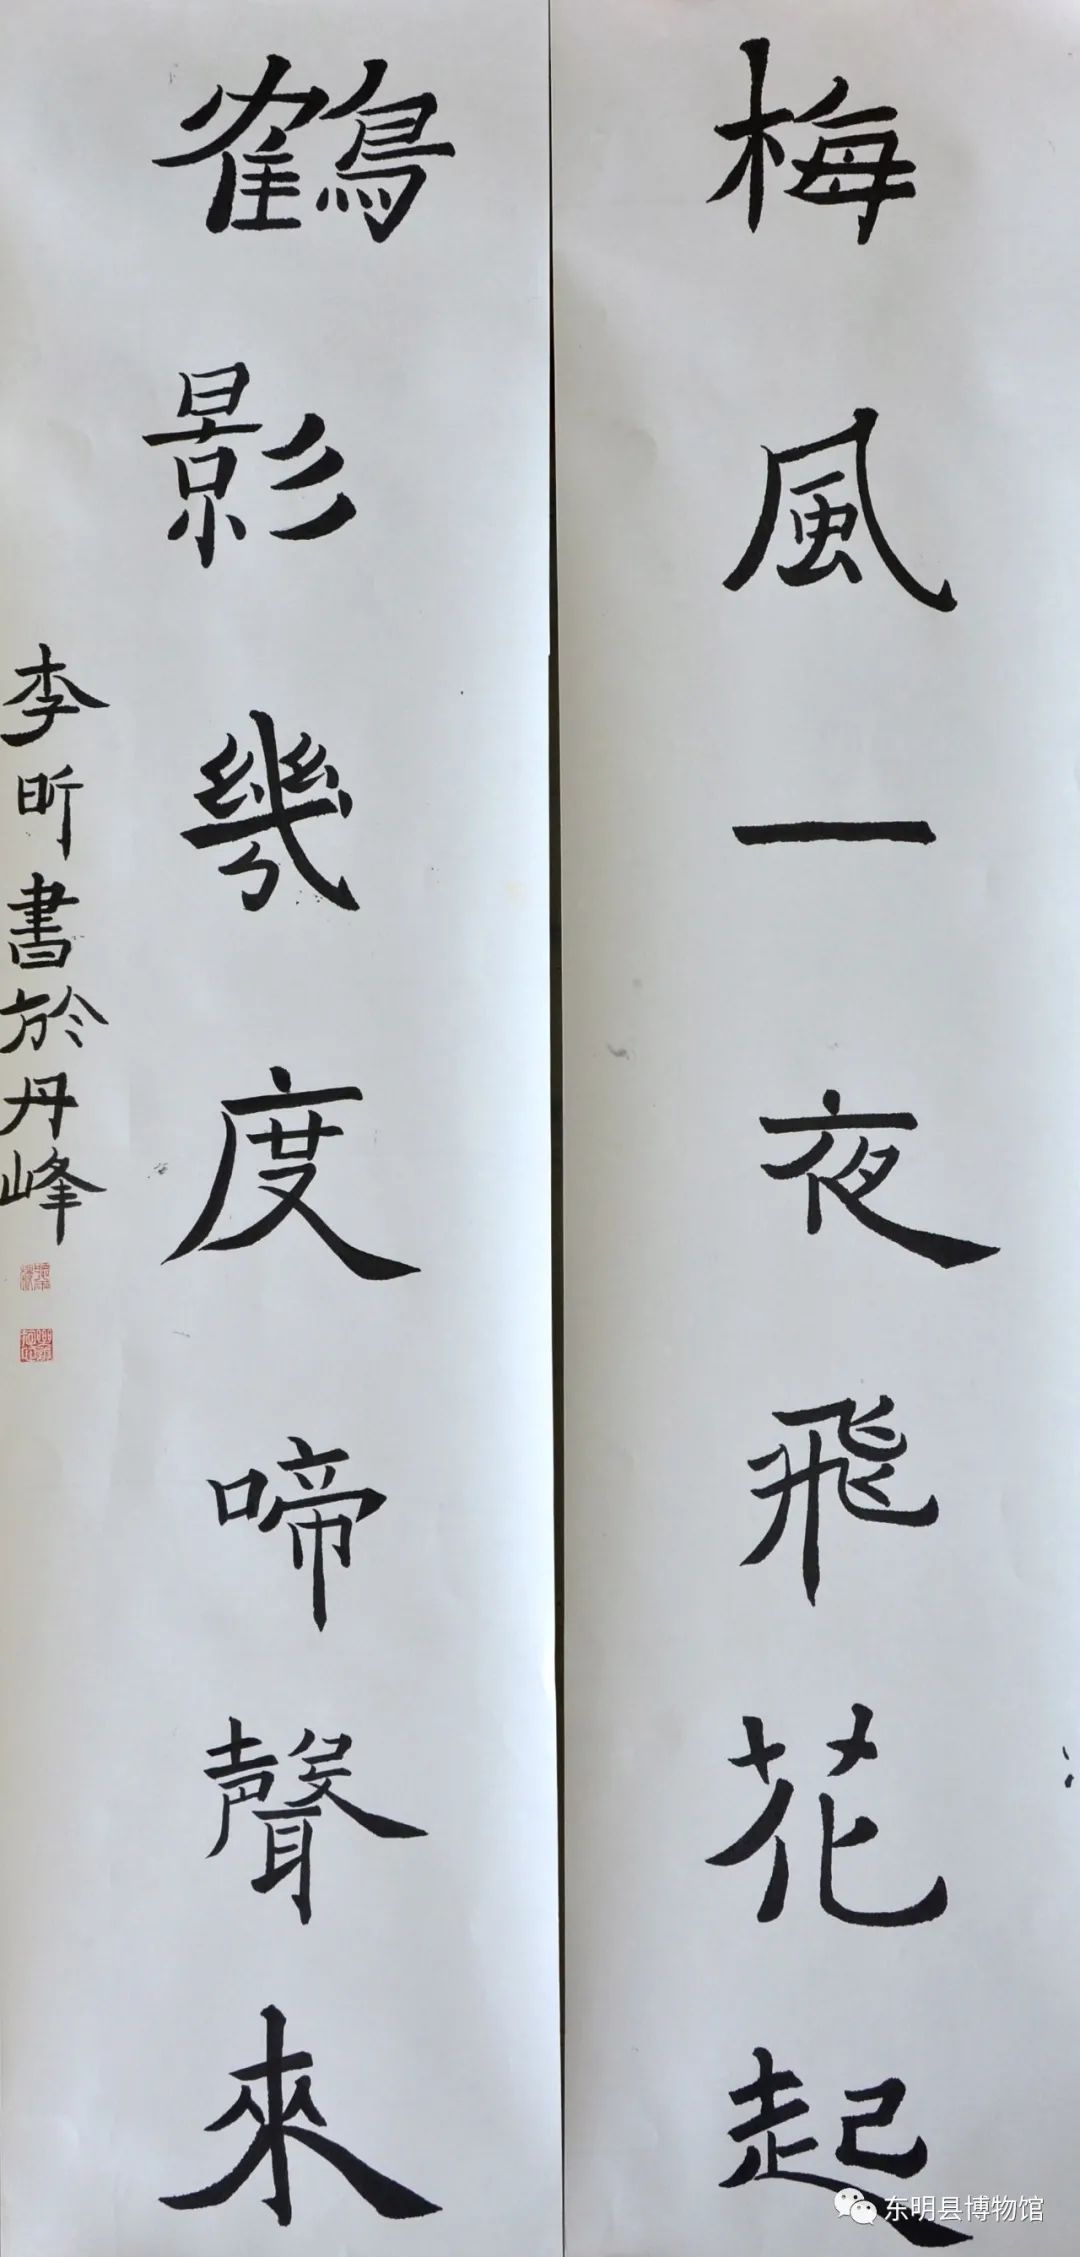 梅風一夜飛花起
鶴影幾度啼聲來
李昕書於丹峰
东明县博物馆